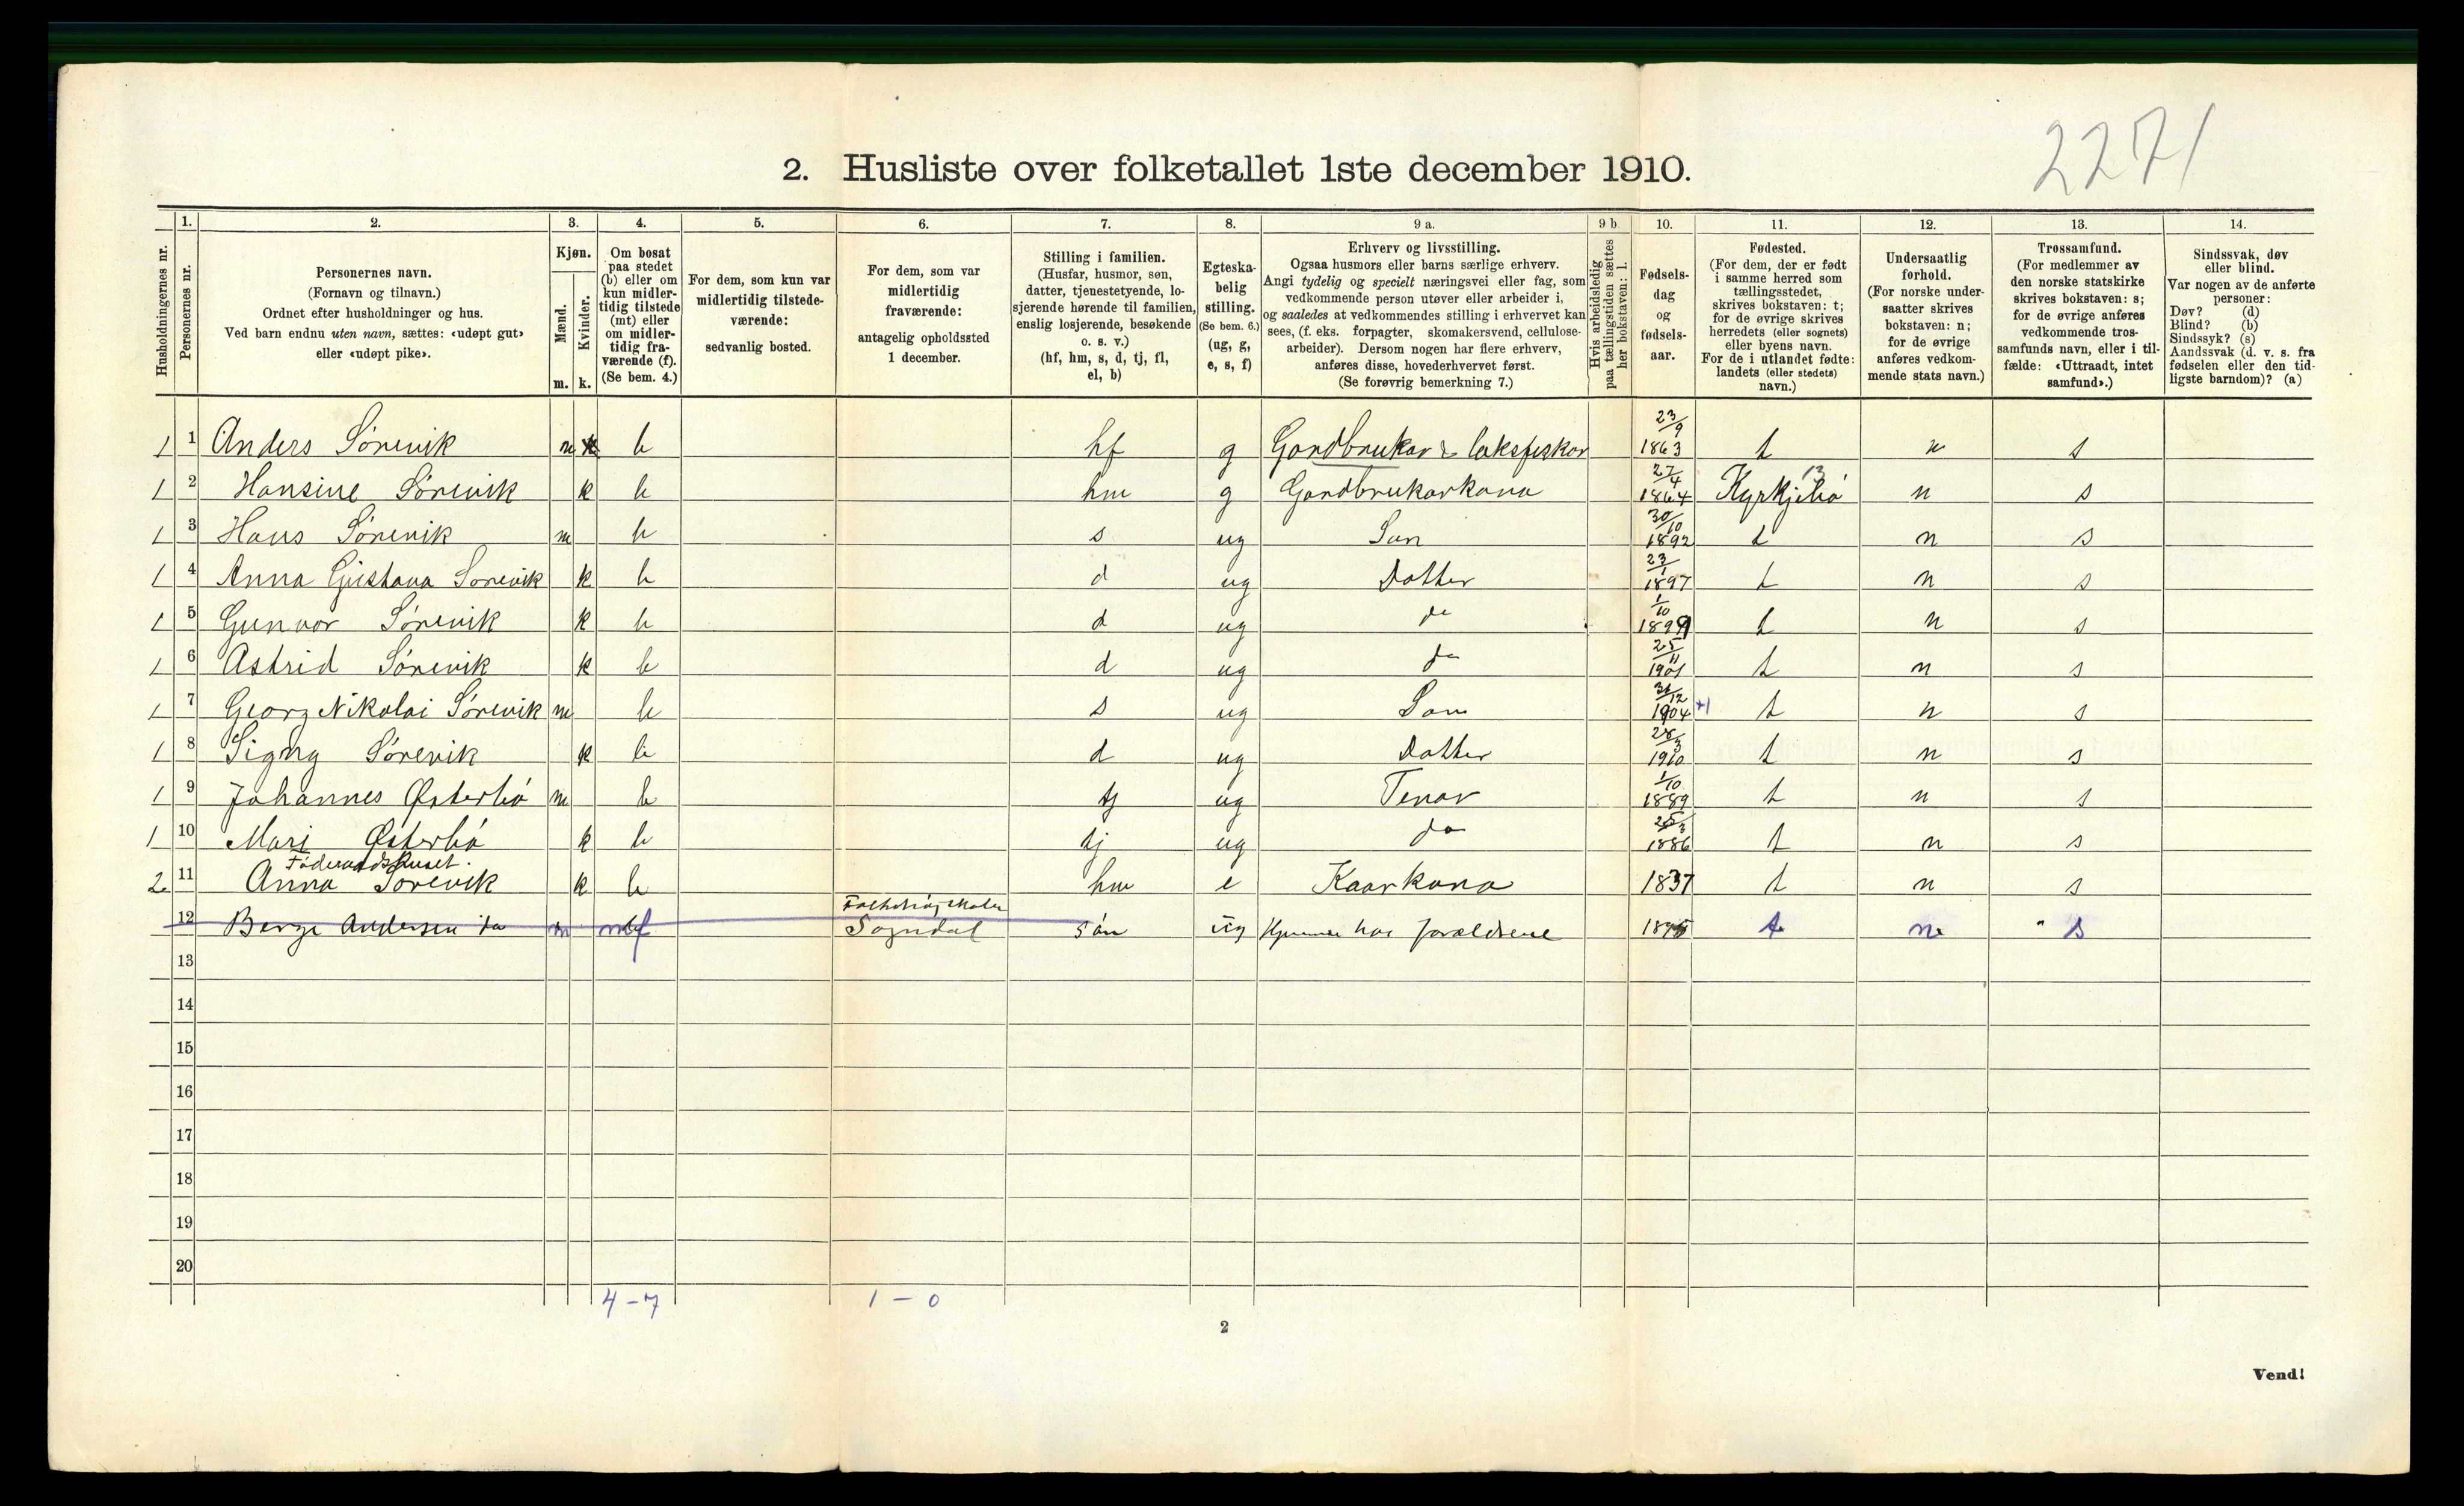 2271
2. Husliste over folketallet 1ste december 1910.
1. 2. 3. 4. 5. 6. 7. 8. 9 a. 9 b. 10. 11. 12. 13. 14.
Husholdningernes nr.
Personernes nr.
Personernes navn.
(Fornavn og tilnavn.)
Ordnet efter husholdninger og hus.
Ved barn endnu uten navn, sættes: «udøpt gut»
eller «udøpt pike».
Kjøn.
Mænd.
Kvinder.
m. k.
Om bosat
paa stedet
(b) eller om
kun midler-
tidig tilstede
(mt) eller
om midler-
tidig fra-
værende (f).
(Se bem. 4.)
For dem, som kun var
midlertidig tilstede-
værende:
sedvanlig bosted.
For dem, som var
midlertidig
fraværende:
antagelig opholdssted
1 december.
Stilling i familien.
(Husfar, husmor, søn,
datter, tjenestetyende, lo-
sjerende hørende til familien,
enslig losjerende, besøkende
o. s. v.)
(hf, hm, s, d, tj, fl,
el, b)
Egteska-
belig
stilling.
(Se bem. 6.)
(ug, g,
e, s, f)
Erhverv og livsstilling.
Ogsaa husmors eller barns særlige erhverv.
Angi tydelig og specielt næringsvei eller fag, som
vedkommende person utøver eller arbeider i,
og saaledes at vedkommendes stilling i erhvervet kan
sees, (f. eks. forpagter, skomakersvend, cellulose-
arbeider). Dersom nogen har flere erhverv,
anføres disse, hovederhvervet først.
(Se forøvrig bemerkning 7.)
Hvis arbeidsledig
paa tællingstiden sættes
her bokstaven: l.
Fødsels-
dag
og
fødsels-
aar.
Fødested.
(For dem, der er født
i samme herred som
tællingsstedet,
skrives bokstaven: t;
for de øvrige skrives
herredets (eller sognets)
eller byens navn.
For de i utlandet fødte:
landets (eller stedets)
navn.)
Undersaatlig
forhold.
(For norske under-
saatter skrives
bokstaven: n;
for de øvrige
anføres vedkom-
mende stats navn.)
Trossamfund.
(For medlemmer av
den norske statskirke
skrives bokstaven: s;
for de øvrige anføres
vedkommende tros-
samfunds navn, eller i til-
fælde: «Uttraadt, intet
samfund».)
Sindssvak, døv
eller blind.
Var nogen av de anførte
personer:
Døv? (d)
Blind? (b)
Sindssyk? (s)
Aandssvak (d. v. s. fra
fødselen eller den tid-
ligste barndom)? (a)
1 1 Anders Sørevik m b hf g Gardbrukar & laksfiskar 23/9 1863 t n s
1 2 Hansine Sørevik k b hm g Gardbrukarkona 27/4 1864 Kyrkjebø 13 n s
1 3 Hans Sørevik m b s ug Son 30/10 1892 t n s
1 4 Anna Gustava Sørevik k b d ug Dotter 23/1 1897 t n s
1 5 Gunvor Sørevik k b d ug do 1/10 1899 t n s
1 6 Astrid Sørevik k b d ug do 25/11 1901 t n s
1 7 Georg Nikolai Sørevik m b s ug Son 31/12 1904 +1 t n s
1 8 Signy Sørevik k b d ug Dotter 28/3 1910 t n s
1 9 Johannes Østerbø m b tj ug Tenar 1/10 1889 t n s
1 10 Mari Østerbø k b tj ug do 25/3 1886 t n s
Føderaadshuset.
2 11 Anna Sørevik k b hm e Kaarkona 1837 t n s
12 Berge Andersen do m f Sogndal søn ug Hjemme hos forældrene t n " s
13
14
15
16
17
18
19
20
4 - 7 1 - 0
2
Vend!